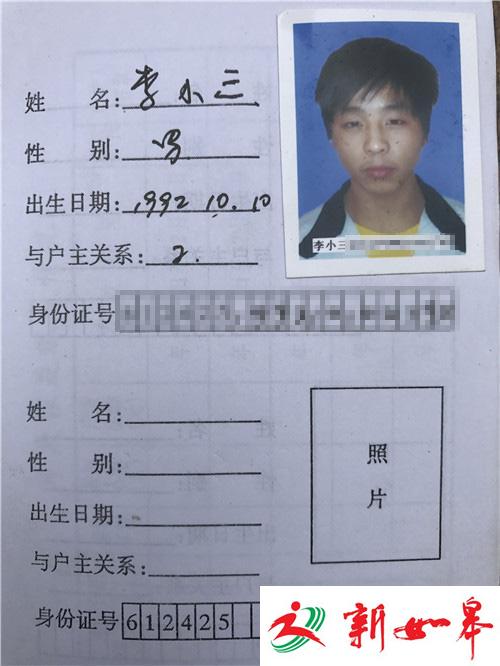 姓　名：李小三
性　别：男
出生日期：1992.10.10
与户主关系：2.
李小三
身份证号
姓　名：
性　别：
出生日期：
与户主关系：
照
片
身份证号 612425
新如皋